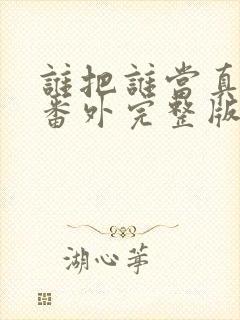 誰把誰當真
番外完整版
湖心茅